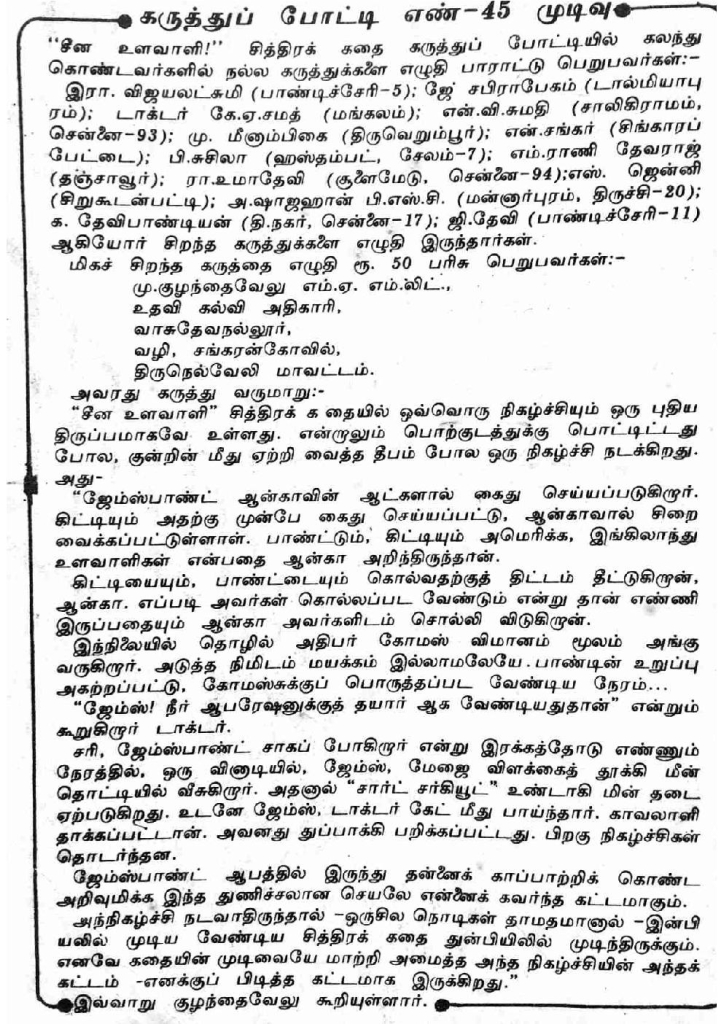 கருத்துப் போட்டி எண்-45 முடிவு
“சீன உளவாளி!” சித்திரக் கதை கருத்துப் போட்டியில் கலந்து
கொண்டவர்களில் நல்ல கருத்துக்களை எழுதி பாராட்டு பெறுபவர்கள்:-
இரா. விஜயலட்சுமி (பாண்டிச்சேரி-5); ஜே சபிராபேகம் (டால்மியாபு
ரம்); டாக்டர் கே.ஏ.சமத் (மங்கலம்); என்.வி.சுமதி (சாலிகிராமம்,
சென்னை-93); மு. மீனாம்பிகை (திருவெறும்பூர்); என்.சங்கர் (சிங்காரப்
பேட்டை); பி.சுசிலா (ஹஸ்தம்பட், சேலம்-7); எம்.ராணி தேவராஜ்
(தஞ்சாவூர்); ரா.உமாதேவி (சூளைமேடு, சென்னை-94);எஸ். ஜென்னி
(சிறுகூடன்பட்டி); அ.ஷாஜஹான் பி.எஸ்.சி. (மன்னார்புரம், திருச்சி-20);
க. தேவிபாண்டியன் (தி.நகர், சென்னை-17); ஜி.தேவி (பாண்டிச்சேரி-11)
ஆகியோர் சிறந்த கருத்துக்களை எழுதி இருந்தார்கள்.
மிகச் சிறந்த கருத்தை எழுதி ரூ. 50 பரிசு பெறுபவர்கள்:-
மு.குழந்தைவேலு எம்.ஏ. எம்.லிட்.,
உதவி கல்வி அதிகாரி,
வாசுதேவநல்லூர்,
வழி, சங்கரன்கோவில்,
திருநெல்வேலி மாவட்டம்.
அவரது கருத்து வருமாறு:-
“சீன உளவாளி” சித்திரக் க தையில் ஒவ்வொரு நிகழ்ச்சியும் ஒரு புதிய
திருப்பமாகவே உள்ளது. என்றாலும் பொற்குடத்துக்கு பொட்டிட்டது
போல, குன்றின் மீது ஏற்றி வைத்த தீபம் போல ஒரு நிகழ்ச்சி நடக்கிறது.
அது-
“ஜேம்ஸ்பாண்ட் ஆன்காவின் ஆட்களால் கைது செய்யப்படுகிறார்.
கிட்டியும் அதற்கு முன்பே கைது செய்யப்பட்டு, ஆன்காவால் சிறை
வைக்கப்பட்டுள்ளாள். பாண்ட்டும், கிட்டியும் அமெரிக்க, இங்கிலாந்து
உளவாளிகள் என்பதை ஆன்கா அறிந்திருந்தான்.
கிட்டியையும், பாண்ட்டையும் கொல்வதற்குத் திட்டம் தீட்டுகிறான்,
ஆன்கா. எப்படி அவர்கள் கொல்லப்பட வேண்டும் என்று தான் எண்ணி
இருப்பதையும் ஆன்கா அவர்களிடம் சொல்லி விடுகிறான்.
இந்நிலையில் தொழில் அதிபர் கோமஸ் விமானம் மூலம் அங்கு
வருகிறார். அடுத்த நிமிடம் மயக்கம் இல்லாமலேயே. பாண்டின் உறுப்பு
அகற்றப்பட்டு, கோமஸ்சுக்குப் பொருத்தப்பட வேண்டிய நேரம்...
“ஜேம்ஸ்! நீர் ஆபரேஷனுக்குத் தயார் ஆக வேண்டியதுதான்” என்றும்
கூறுகிறார் டாக்டர்.
சரி, ஜேம்ஸ்பாண்ட் சாகப் போகிறார் என்று இரக்கத்தோடு எண்ணும்
நேரத்தில், ஒரு வினாடியில், ஜேம்ஸ், மேஜை விளக்கைத் தூக்கி மீன்
தொட்டியில் வீசுகிறார். அதனால் “சார்ட் சர்கியூட்” உண்டாகி மின் தடை
ஏற்படுகிறது. உடனே ஜேம்ஸ், டாக்டர் கேட் மீது பாய்ந்தார். காவலாளி
தாக்கப்பட்டான். அவனது துப்பாக்கி பறிக்கப்பட்டது. பிறகு நிகழ்ச்சிகள்
தொடர்ந்தன.
ஜேம்ஸ்பாண்ட் ஆபத்தில் இருந்து தன்னைக் காப்பாற்றிக் கொண்ட
அறிவுமிக்க இந்த துணிச்சலான செயலே என்னைக் கவர்ந்த கட்டமாகும்.
அந்நிகழ்ச்சி நடவாதிருந்தால் -ஒருசில நொடிகள் தாமதமானால் -இன்பி
யலில் முடிய வேண்டிய சித்திரக் கதை துன்பியிலில் முடிந்திருக்கும்.
எனவே கதையின் முடிவையே மாற்றி அமைத்த அந்த நிகழ்ச்சியின் அந்தக்
கட்டம் -எனக்குப் பிடித்த கட்டமாக இருக்கிறது.”
இவ்வாறு குழந்தைவேலு கூறியுள்ளார்.